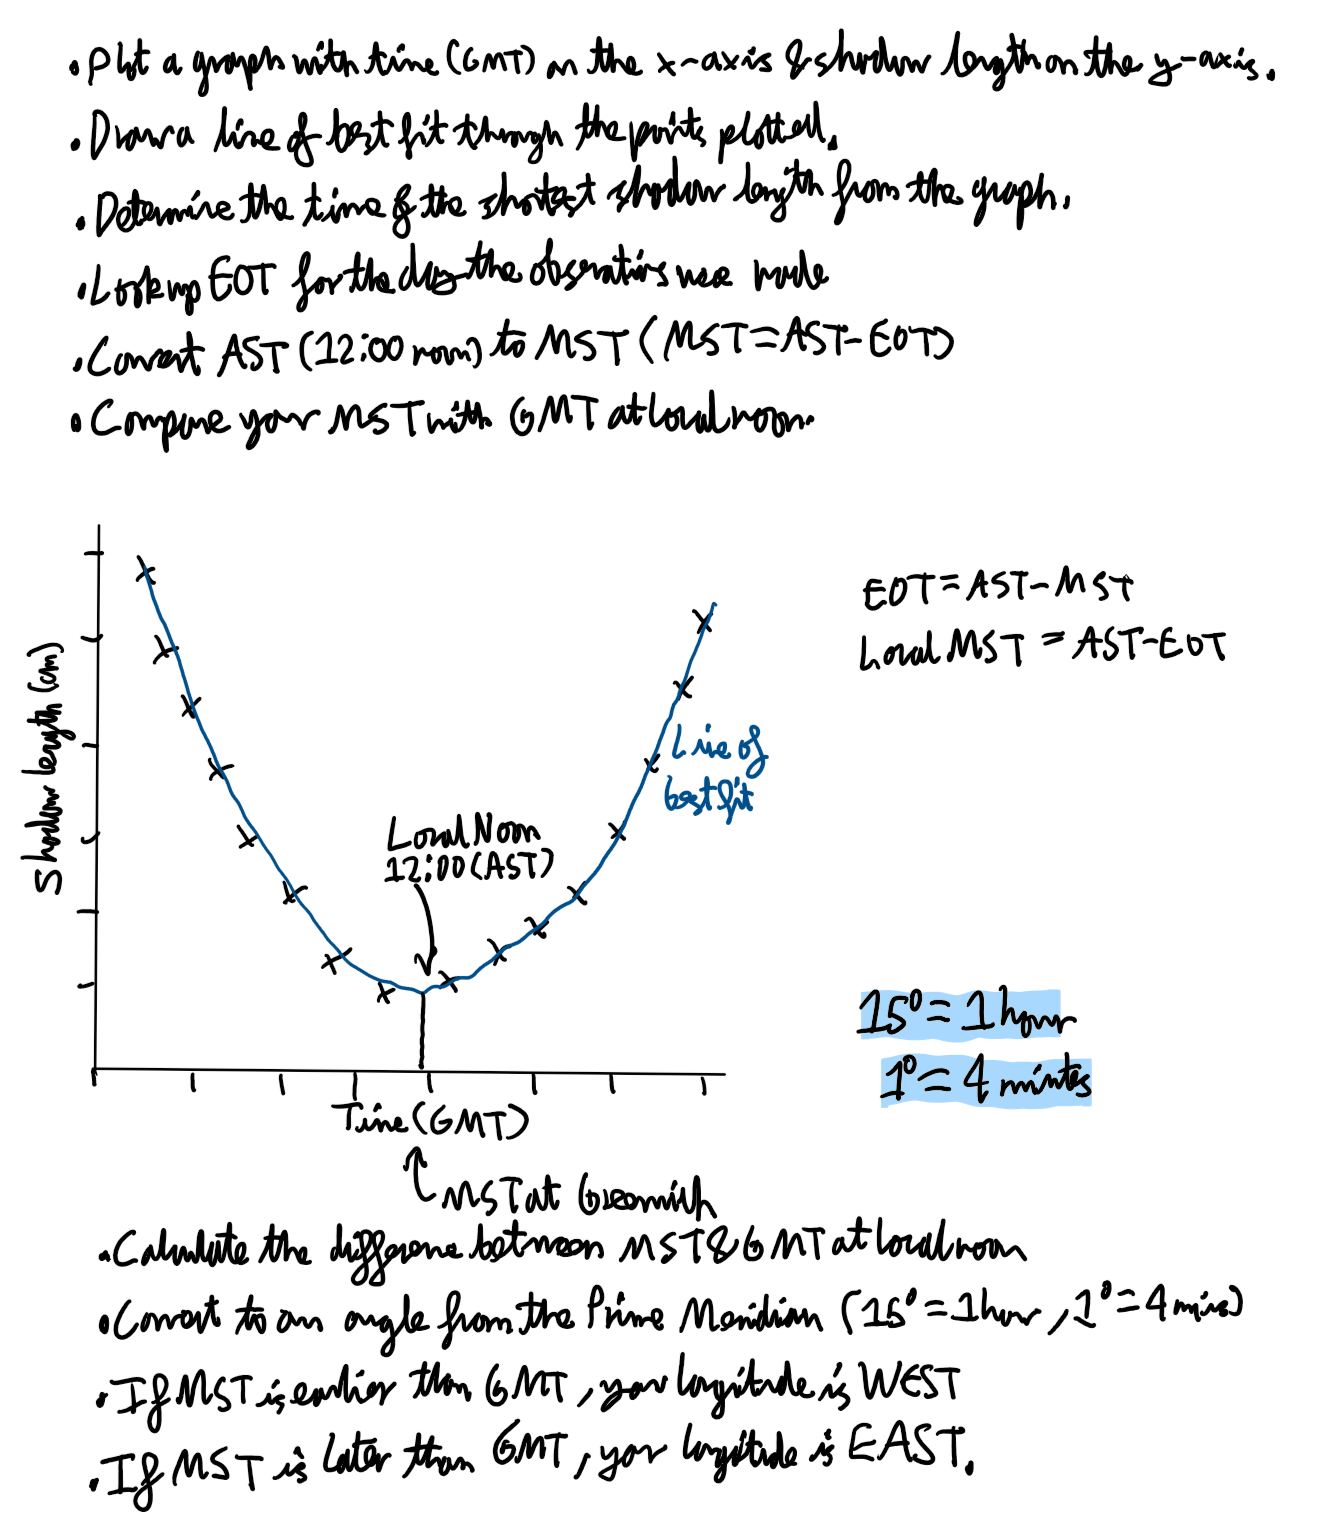 • Plot a graph with time (GMT) on the x-axis & shadow length on the y-axis.
• Draw a line of best fit through the points plotted.
• Determine the time of the shortest shadow length from the graph.
• Look up EOT for the day the observations were made
• Convert AST (12:00 noon) to MST (MST=AST-EOT)
• Compare your MST with GMT at local noon.
EOT=AST-MST
Local MST = AST-EOT
Shadow length (cm)
Line of
best fit
Local Noon
12:00 (AST)
15°=1 hour
1°=4 mintes
Time (GMT)
MST at Greenwich
• Calculate the difference between MST & GMT at local noon
• Convert to an angle from the Prime Meridian (15°=1 hour, 1°=4 mins)
• If MST is earlier than GMT, your longitude is WEST
• If MST is later than GMT, your longitude is EAST.